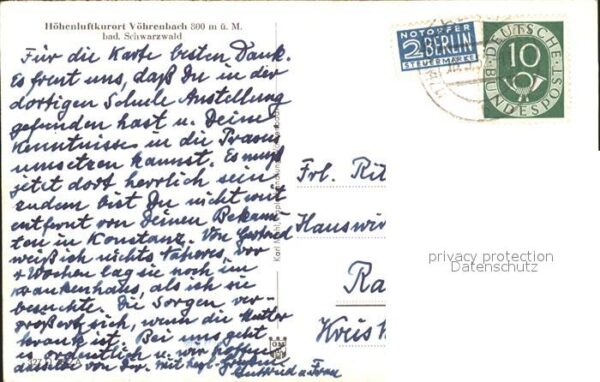 Höhenluftkurort Vöhrenbach 800 m ü. M.
bad. Schwarzwald
Für die Karte besten Dank.
Es freut uns, daß Du in der
dortigen Schule Anstellung
gefunden hast u. Deine
Kenntnisse in die Praxis
umsetzen kannst. Es muß
jetzt dort herrlich sein
zudem bist Du nicht weit
entfernt von Deinen Bekann
ten in Konstanz. Von Gertrud
weiß ich nichts Näheres, vor
4 Wochen lag sie noch im
Krankenhaus, als ich sie
besuchte. Die Sorgen ver-
größert sich, wenn die Mutter
krank ist. Bei uns geht
es ordentlich u. wir hoffen
dasselbe von Dir. Mit hzgl.
u. Frau
NOTOPFER
2 BERLIN
STEUERMARKE
DEUTSCHE
BUNDESPOST
10
Karl
Frl. Rit
Hauswir
Ra
Kreis
privacy protection
Datenschutz